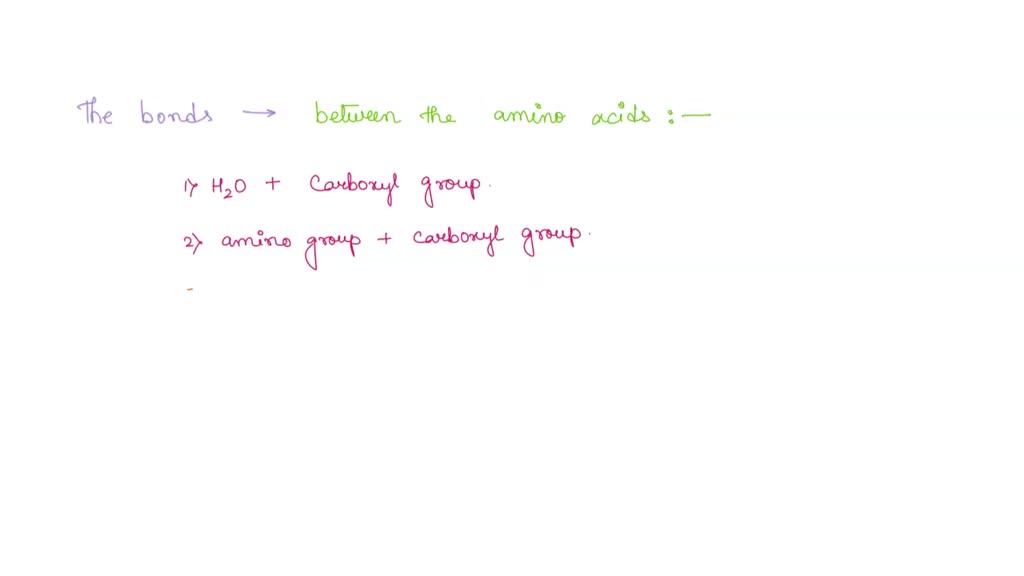 The bonds → between the amino acids :—
1) H₂O + Carboxyl group.
2) amino group + carboxyl group.